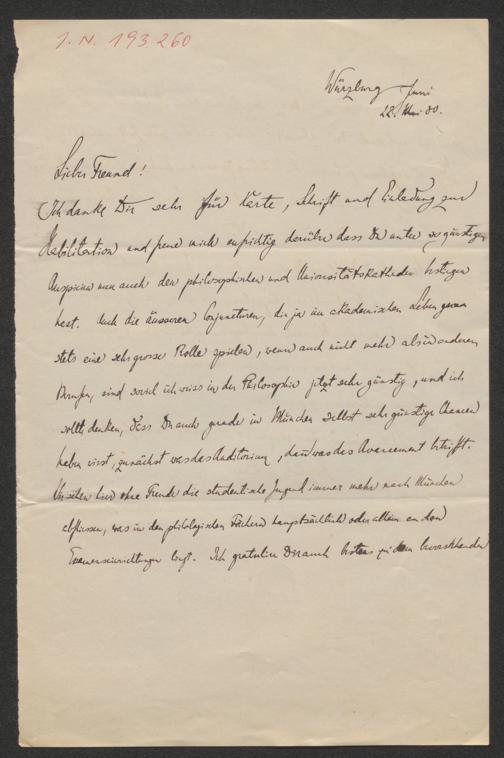 J. N. 193.260
Würzburg Juni
22. Mai 80.
Lieber Freund!
Ich danke Dir sehr für Karte, Schrift und Einladung zur
Habilitation und freue mich aufrichtig darüber dass Du unter so günstigen
Auspicien nun auch den philosophischen und Universitätskatheder bestiegen
hast. Auch die äusseren Conjuncturen, die ja im akademischen Leben
stets eine sehr grosse Rolle spielen, wenn auch nicht mehr als in anderen
Berufen, sind soviel ich weiss in der Philosophie jetzt sehr günstig, und ich
sollte denken, dass Du auch gerade in München selbst sehr günstige Chancen
haben wirst, zunächst was das Auditorium, dann was das Avancement betrifft.
Wir sehen hier ohne Freude die studentische Jugend immer mehr nach München
abfliessen, was in den philologischen Fächern hauptsächlich oder allein an den
Examenseinrichtungen liegt. Ich gratulire Dir auch bestens zu dem bevorstehenden